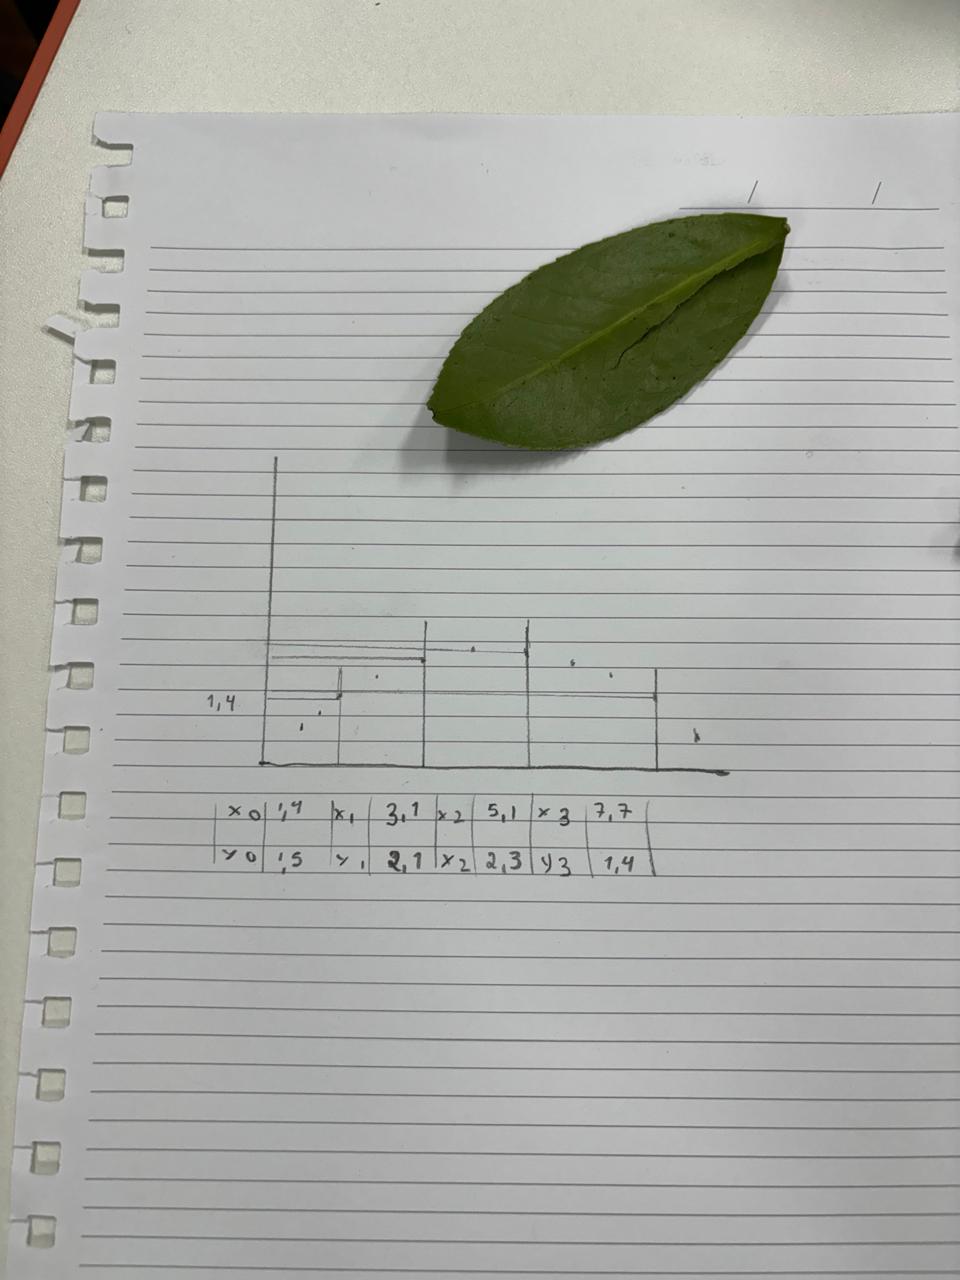 / /
1,4
x0 1,4 x1 3,1 x2 5,1 x3 7,7
y0 1,5 y1 2,1 x2 2,3 y3 1,4